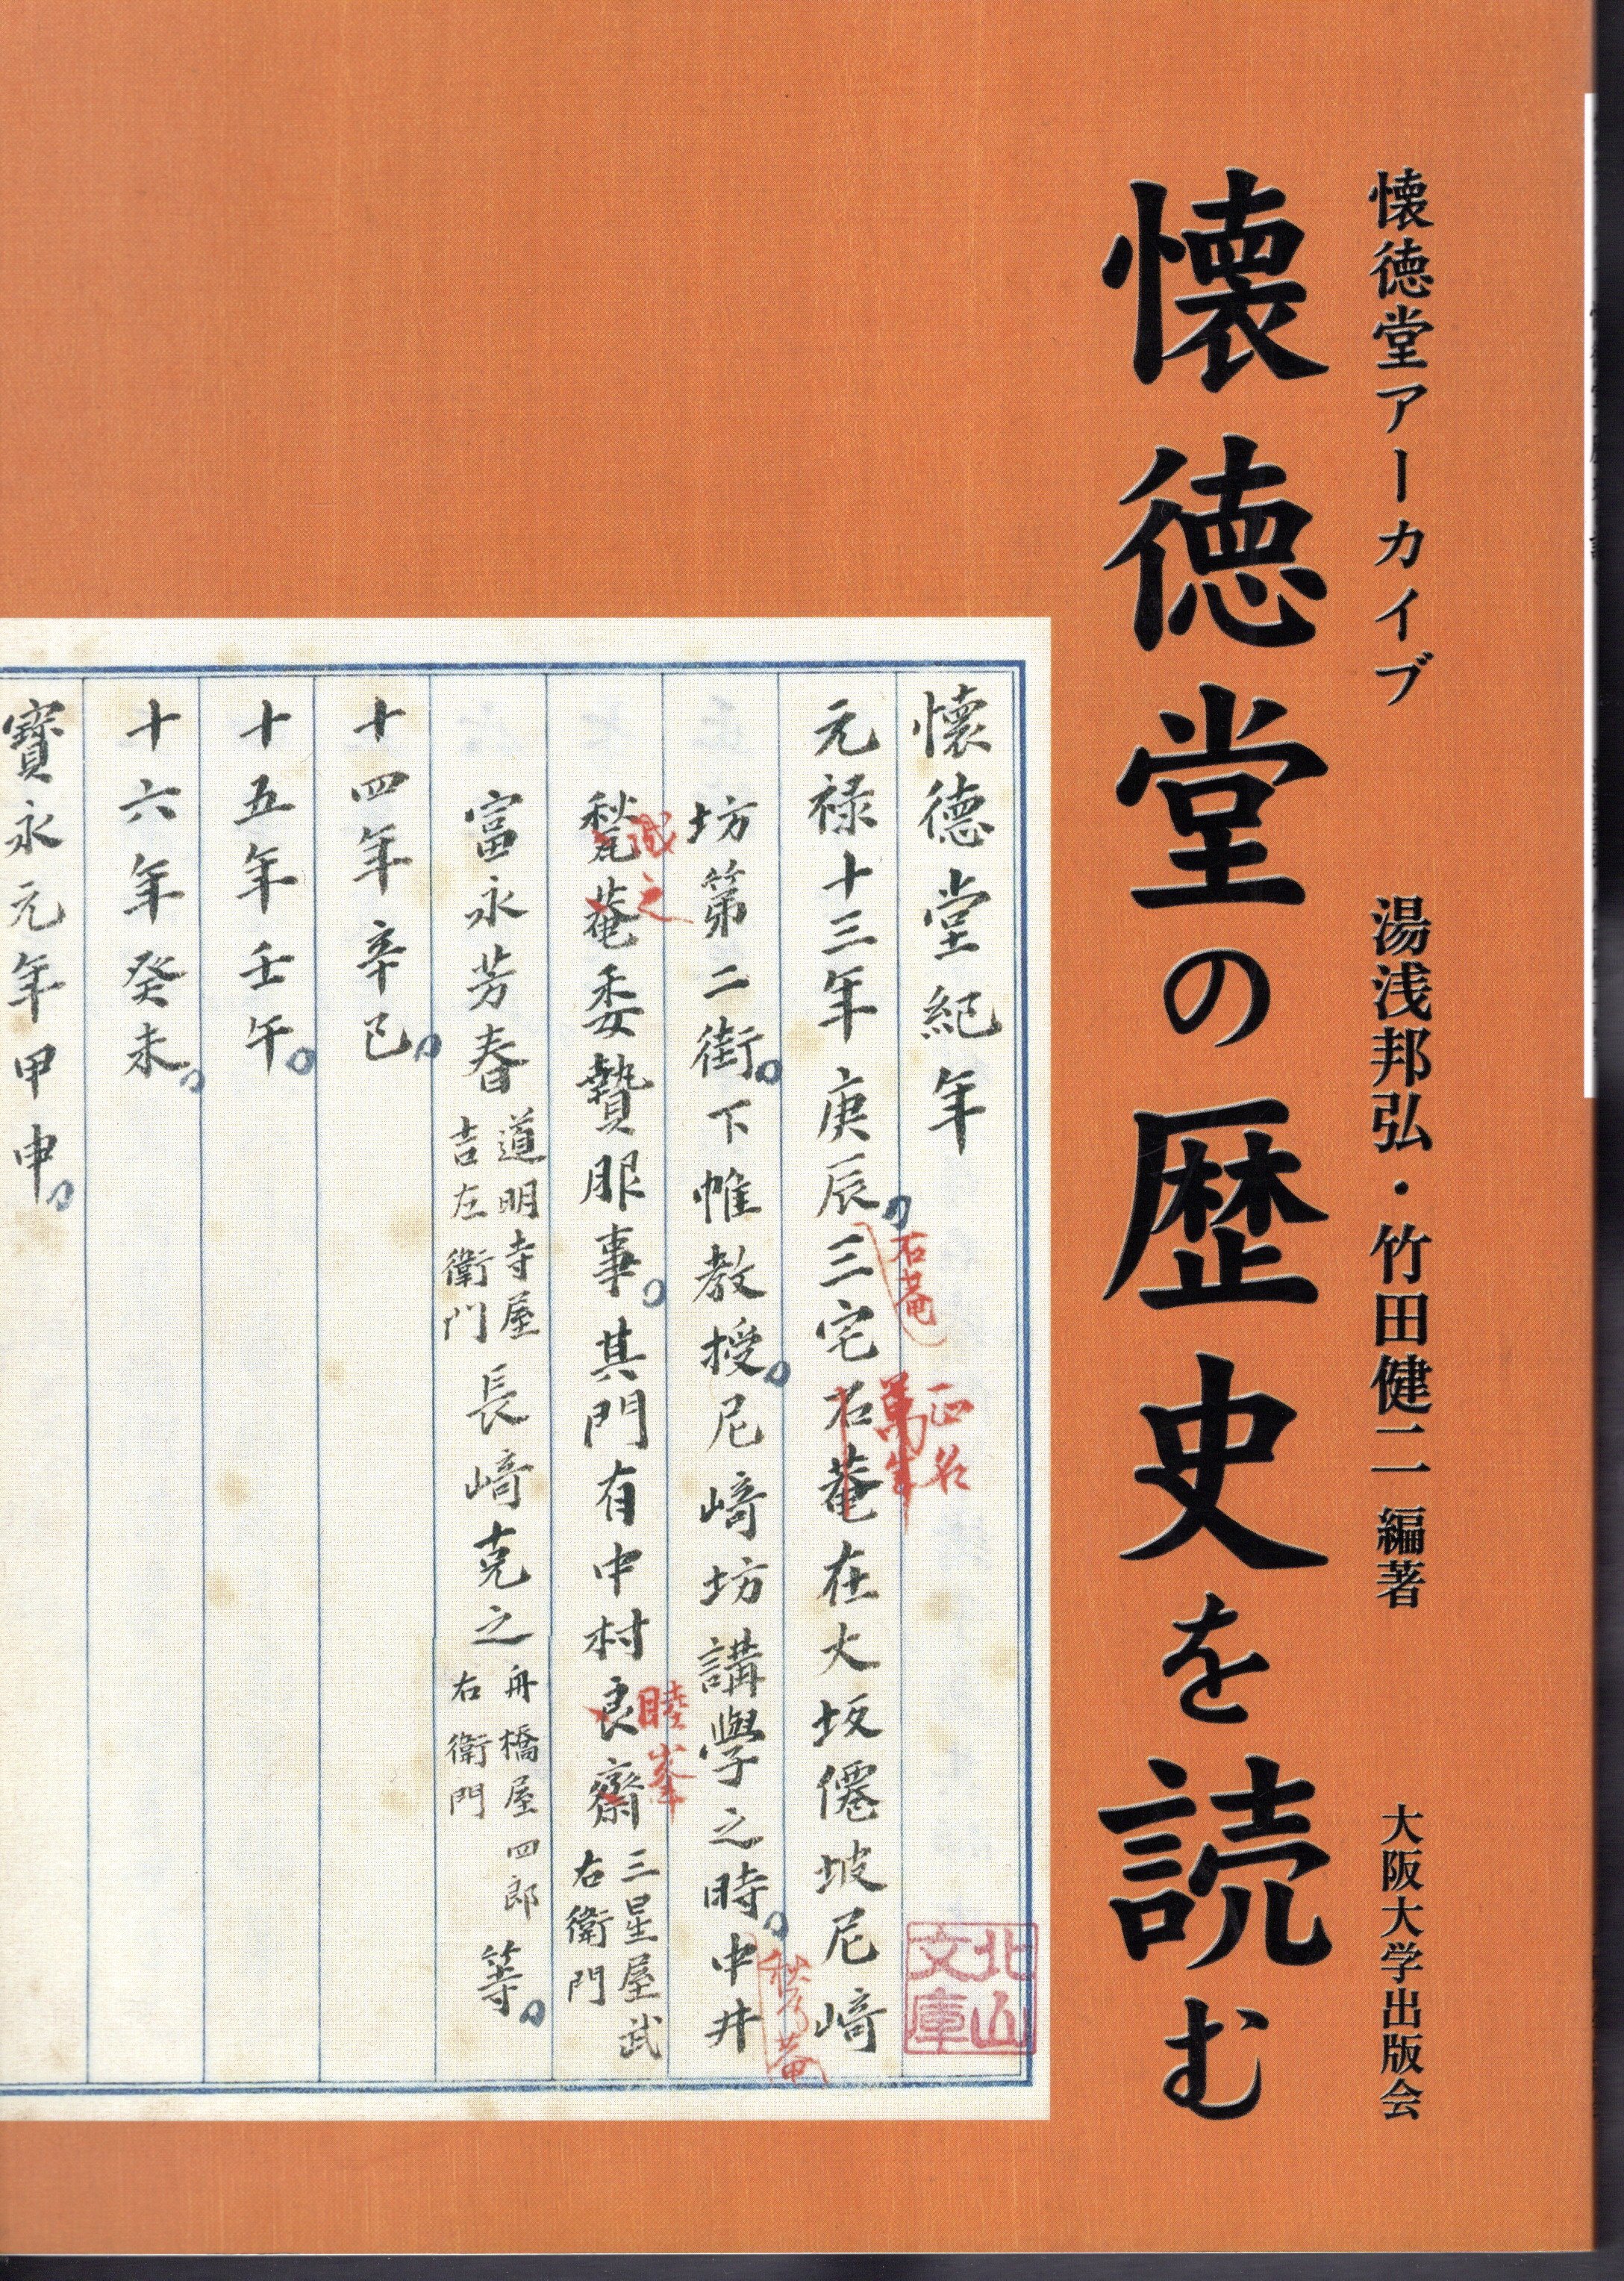 懐徳堂アーカイブ　湯浅邦弘・竹田健二 編著　大阪大学出版会
懐徳堂の歴史を読む
懐德堂紀年
元禄十三年庚辰三宅石菴在大坂僊坡尼﨑
石菴
正名
萬年
坊第二街下帷教授尼﨑坊講學之時中井
甃菴委贄服事其門有中村良齋三星屋武右衛門
誠之
睦峯
富永芳春道明寺屋吉左衛門長﨑克之舟橋屋四郎右衛門等
十四年辛巳
十五年壬午
十六年癸未
寶永元年甲申
北山文庫